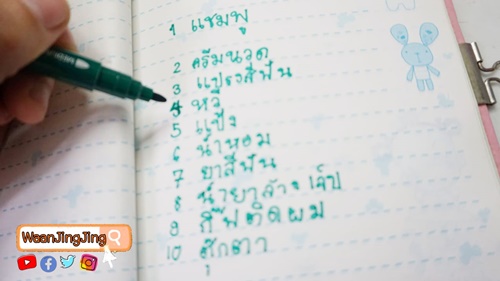 1 แชมพู
2 ครีมนวด
3 แปรงสีฟัน
4 หวี
5 แป้ง
6 น้ำหอม
7 ยาสีฟัน
8 น้ำยาล้างเล็บ
9 กิ๊ฟติดผม
10 ตุ๊กตา
WaanJingJing